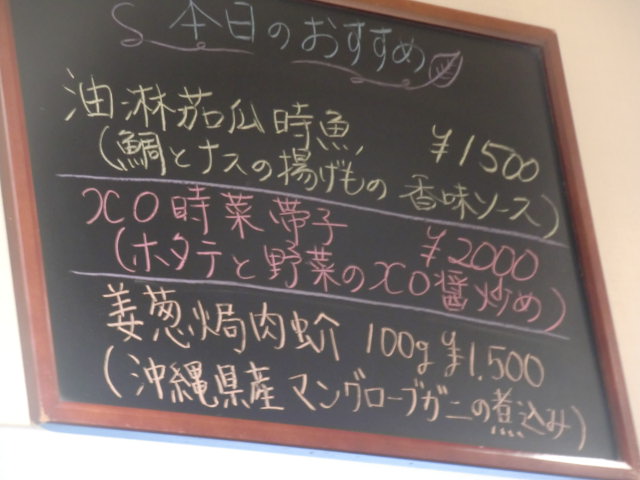 本日のおすすめ
油淋茄瓜時魚 ¥1500
(鯛とナスの揚げもの 香味ソース)
XO時菜帯子 ¥2000
(ホタテと野菜のXO醤炒め)
姜葱焗肉蚧 100g ¥1,500
(沖縄県産マングローブガニの煮込み)